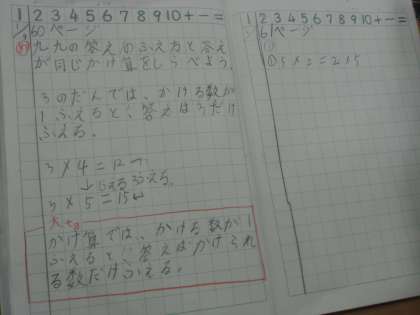 1 2 3 4 5 6 7 8 9 10 + − =
60ページ
め 九九の答えのふえ方と答え
が同じかけ算をしらべよう。
3のだんでは、かける数が
1ふえると、答えは3だけ
ふえる。
3×4=12
↓ 3ふえる。
3×5=15
かけ算では、かける数が1
ふえると、答えはかけられ
る数だけふえる。
1 2 3 4 5 6 7 8 9 10 + − =
61ページ
①5×2=2×5